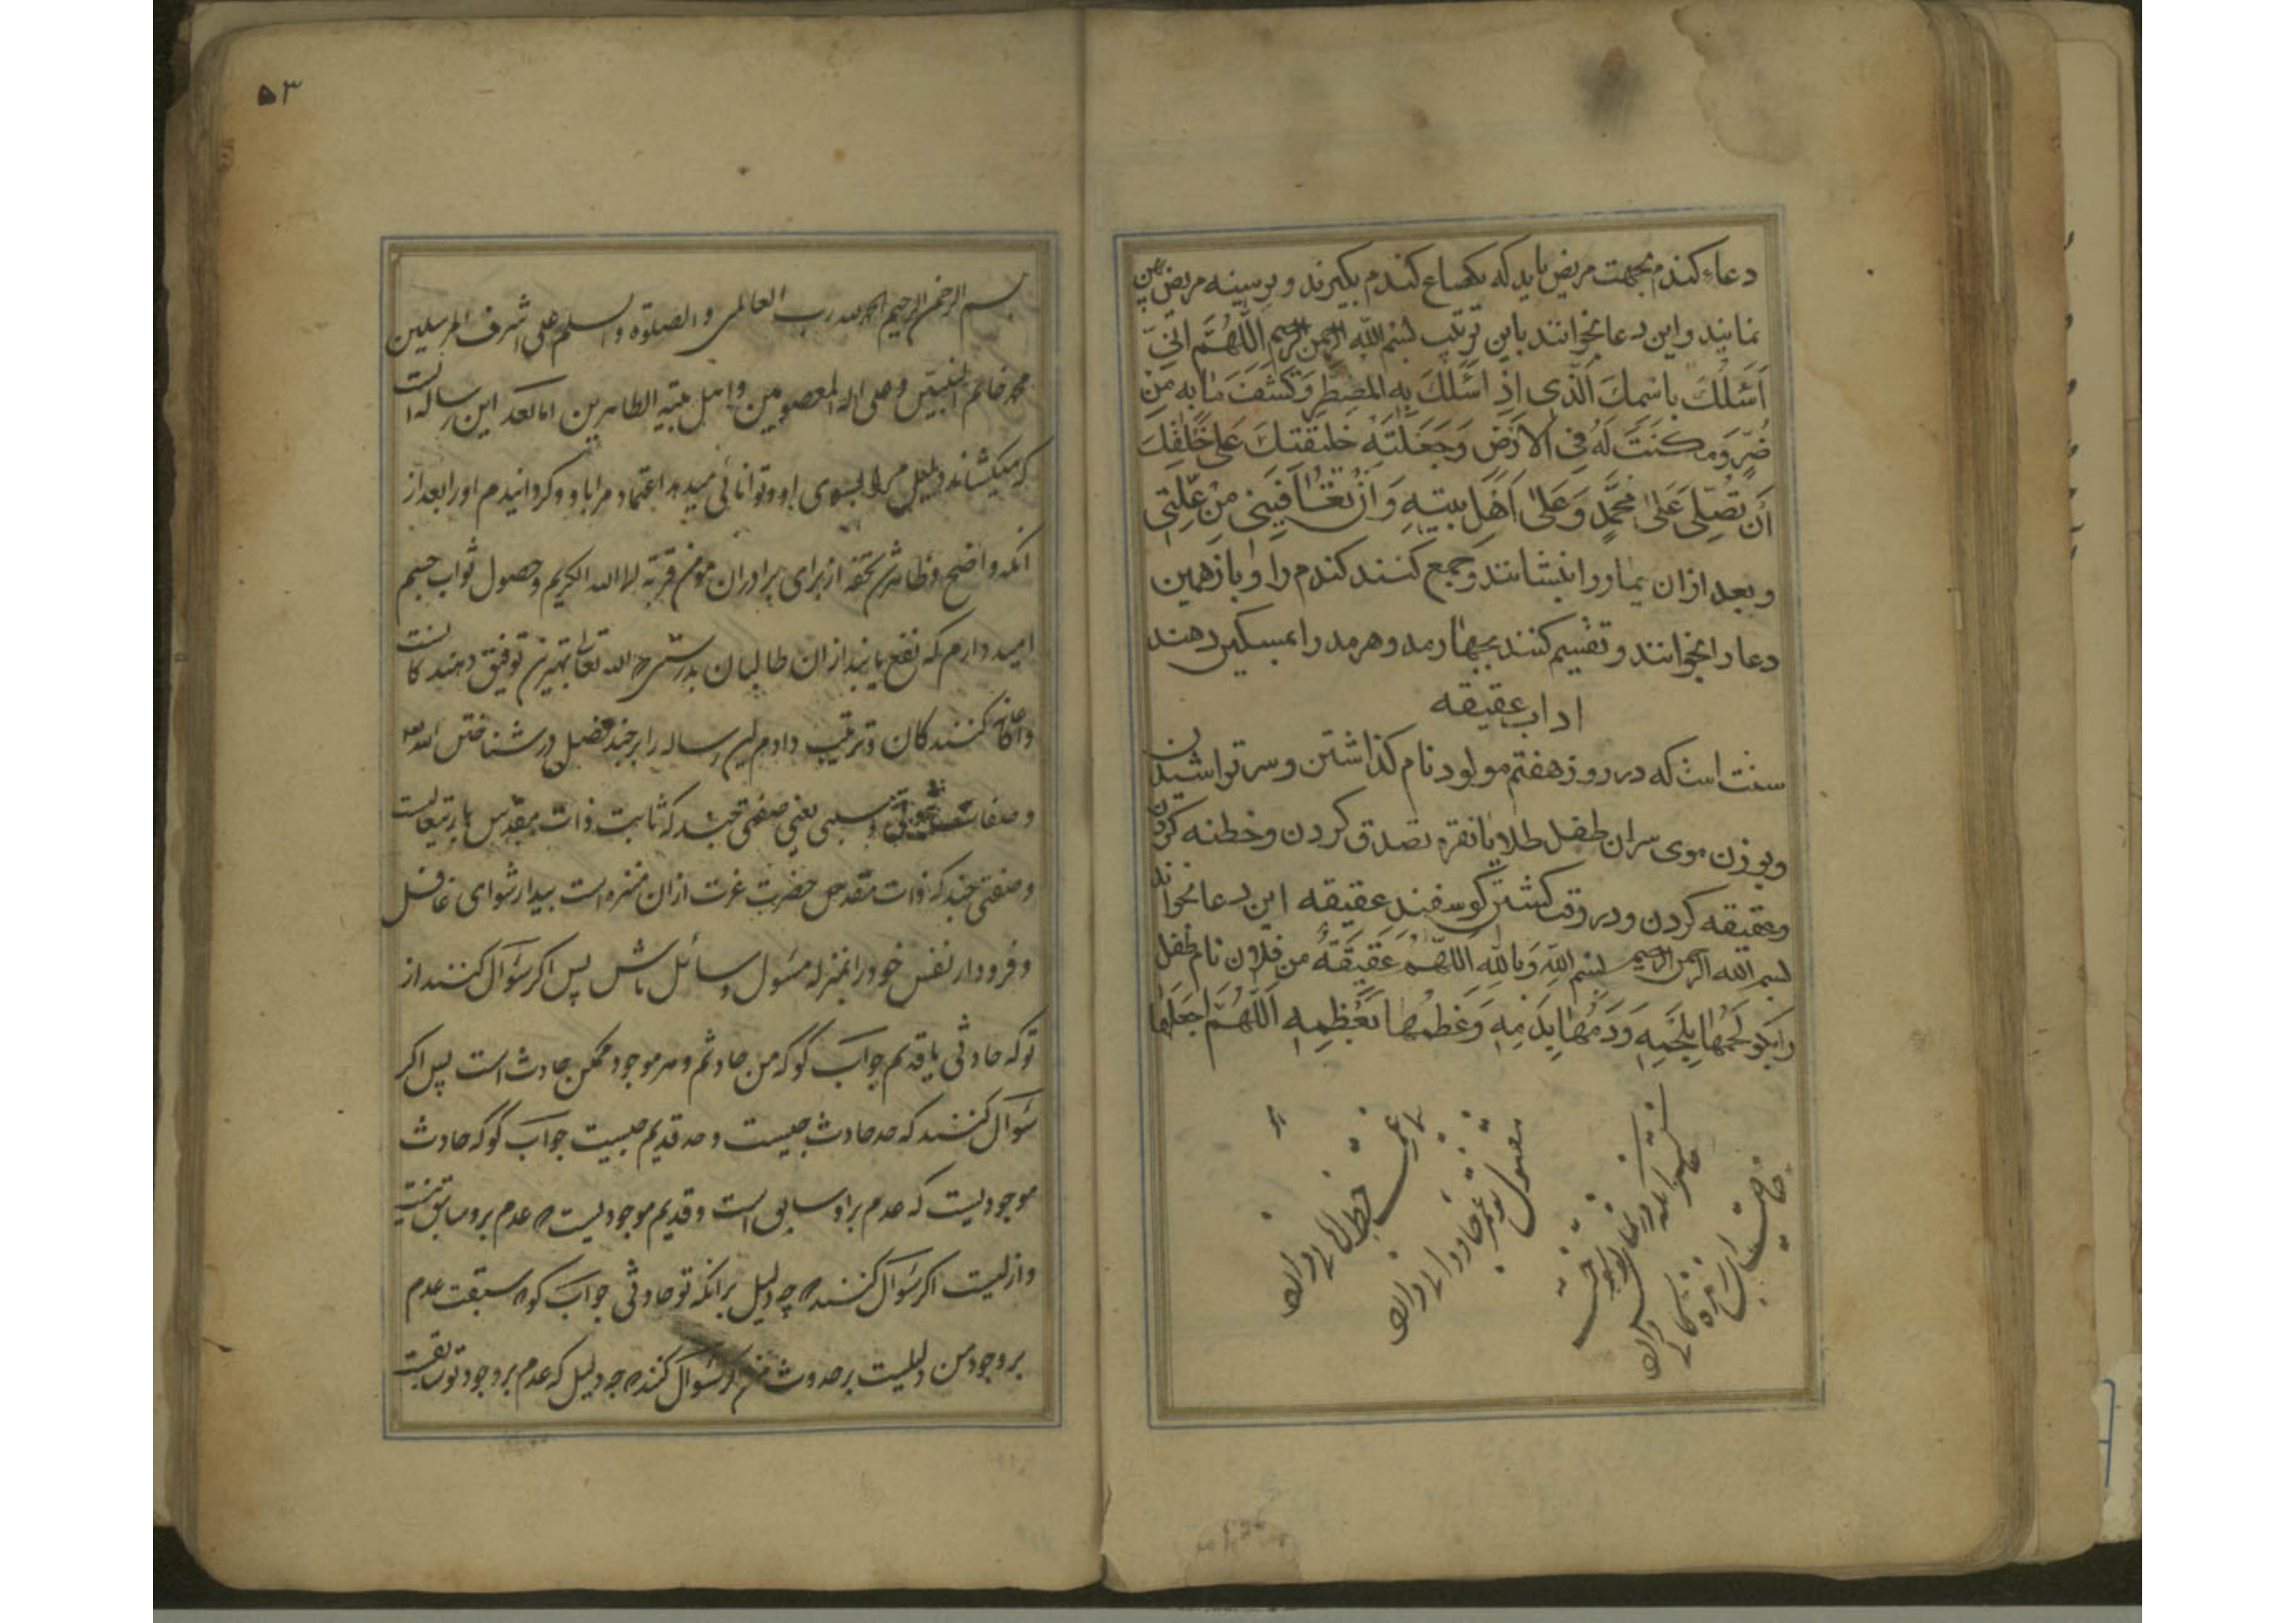 دعاء کندم بجهت مریض باید که یکصاع کندم بکیرند و بر سینه مریض پهن
نمایند و این دعا بخوانند باین ترتیب بسم الله الرحمن الرحیم اللّٰهُمَّ اِنّی
اَسْئَلُكَ بِاسْمِكَ الَّذی اِذٰا سَئَلَكَ بِهِ المُضطَرِ وَكَشَفْتَ مٰا بِهِ مِنْ
ضُرٍّ وَمَكَنْتَ لَهُ فِی الْاَرْضِ وَجَعَلْتَهُ خَلیفَتِكَ عَلیٰ خَلْقِكَ
اَنْ تُصَلّی عَلیٰ مُحَمَّدٍ وَعَلیٰ اَهْلِ بَیتِهِ وَ اَنْ تُعٰافِیَنی مِنْ عِلَّتی
و بعد ازان بیمار را بنشانند و جمع کنند کندم را و باز همین
دعا را بخوانند و تقسیم کنند بچهار مد و هر مد را بمسکین دهند
اداب عقیقه
سنت است که در روز هفتم مولود نام کذاشتن و سر تراشیدن
و بوزن موی سر ان طفل طلا یا نقره تصدق کردن و خطنه کردن
و عقیقه کردن و در وقت کشتن کوسفند عقیقه این دعا بخوانند
بسم الله الرحمن الرحیم بسم اللهِ وَ بِاللهِ اللّٰهُمَّ عَقیقَةُ مِن فلان نام طفل
را بکو لَحْمُهٰا بِلَحْمِهِ وَ دَمُهٰا بِدَمِهِ وَ عَظْمُهٰا بِعَظْمِهِ اَللّٰهُمَّ اجْعَلْهٰا
۵۳
بسم الله الرحمن الرحیم الحمد لله رب العالمین و الصلوة و السلم علی اشرف المرسلین
محمد خاتم النبیین و علی اله المعصومین و اهل بیته الطاهرین اما بعد این رساله ایست
که میکشاند دلیل مرا بسوی او و توانائی میدهد اعتماد مرا باو و کردانیدم او را بعد از
انکه واضح و ظاهر شد تحفه از برای برادران مومن قربة لا الله الکریم و حصول ثواب جسیم
امید دارم که نفع یابند ازان طالبان بدرستی که الله تعالی بهترین توفیق دهندکانست
و اعانة کنندکان و ترتیب دادم این رساله را بر چند فصل در شناختن الله
و صفات ثبوتی و سلبی یعنی صفتی چند که ثابت ذات مقدس باریتعالیست
و صفتی چند که ذات مقدس حضرت عزت ازان منزه است بیدار شو ای غافل
و فرود ار نفس خود را بمنزله مسؤل و سائل باش پس اکر سؤال کنند از
تو که حادثی یا قدیم جواب کو که من حادثم و هر موجود ممکن حادث است پس اکر
سؤال کنند که حد حادث چیست و حد قدیم چیست جواب کو که حادث
موجودیست که عدم بر او سابق است و قدیم موجودیست که عدم برو سابق نیست
و ازلیست اکر سؤال کنند که چه دلیل بر انکه تو حادثی جواب کو که سبقت عدم
بر وجود من دلیلیست بر حدوث من اکر سؤال کنند که چه دلیل که عدم بر وجود تو سابقست